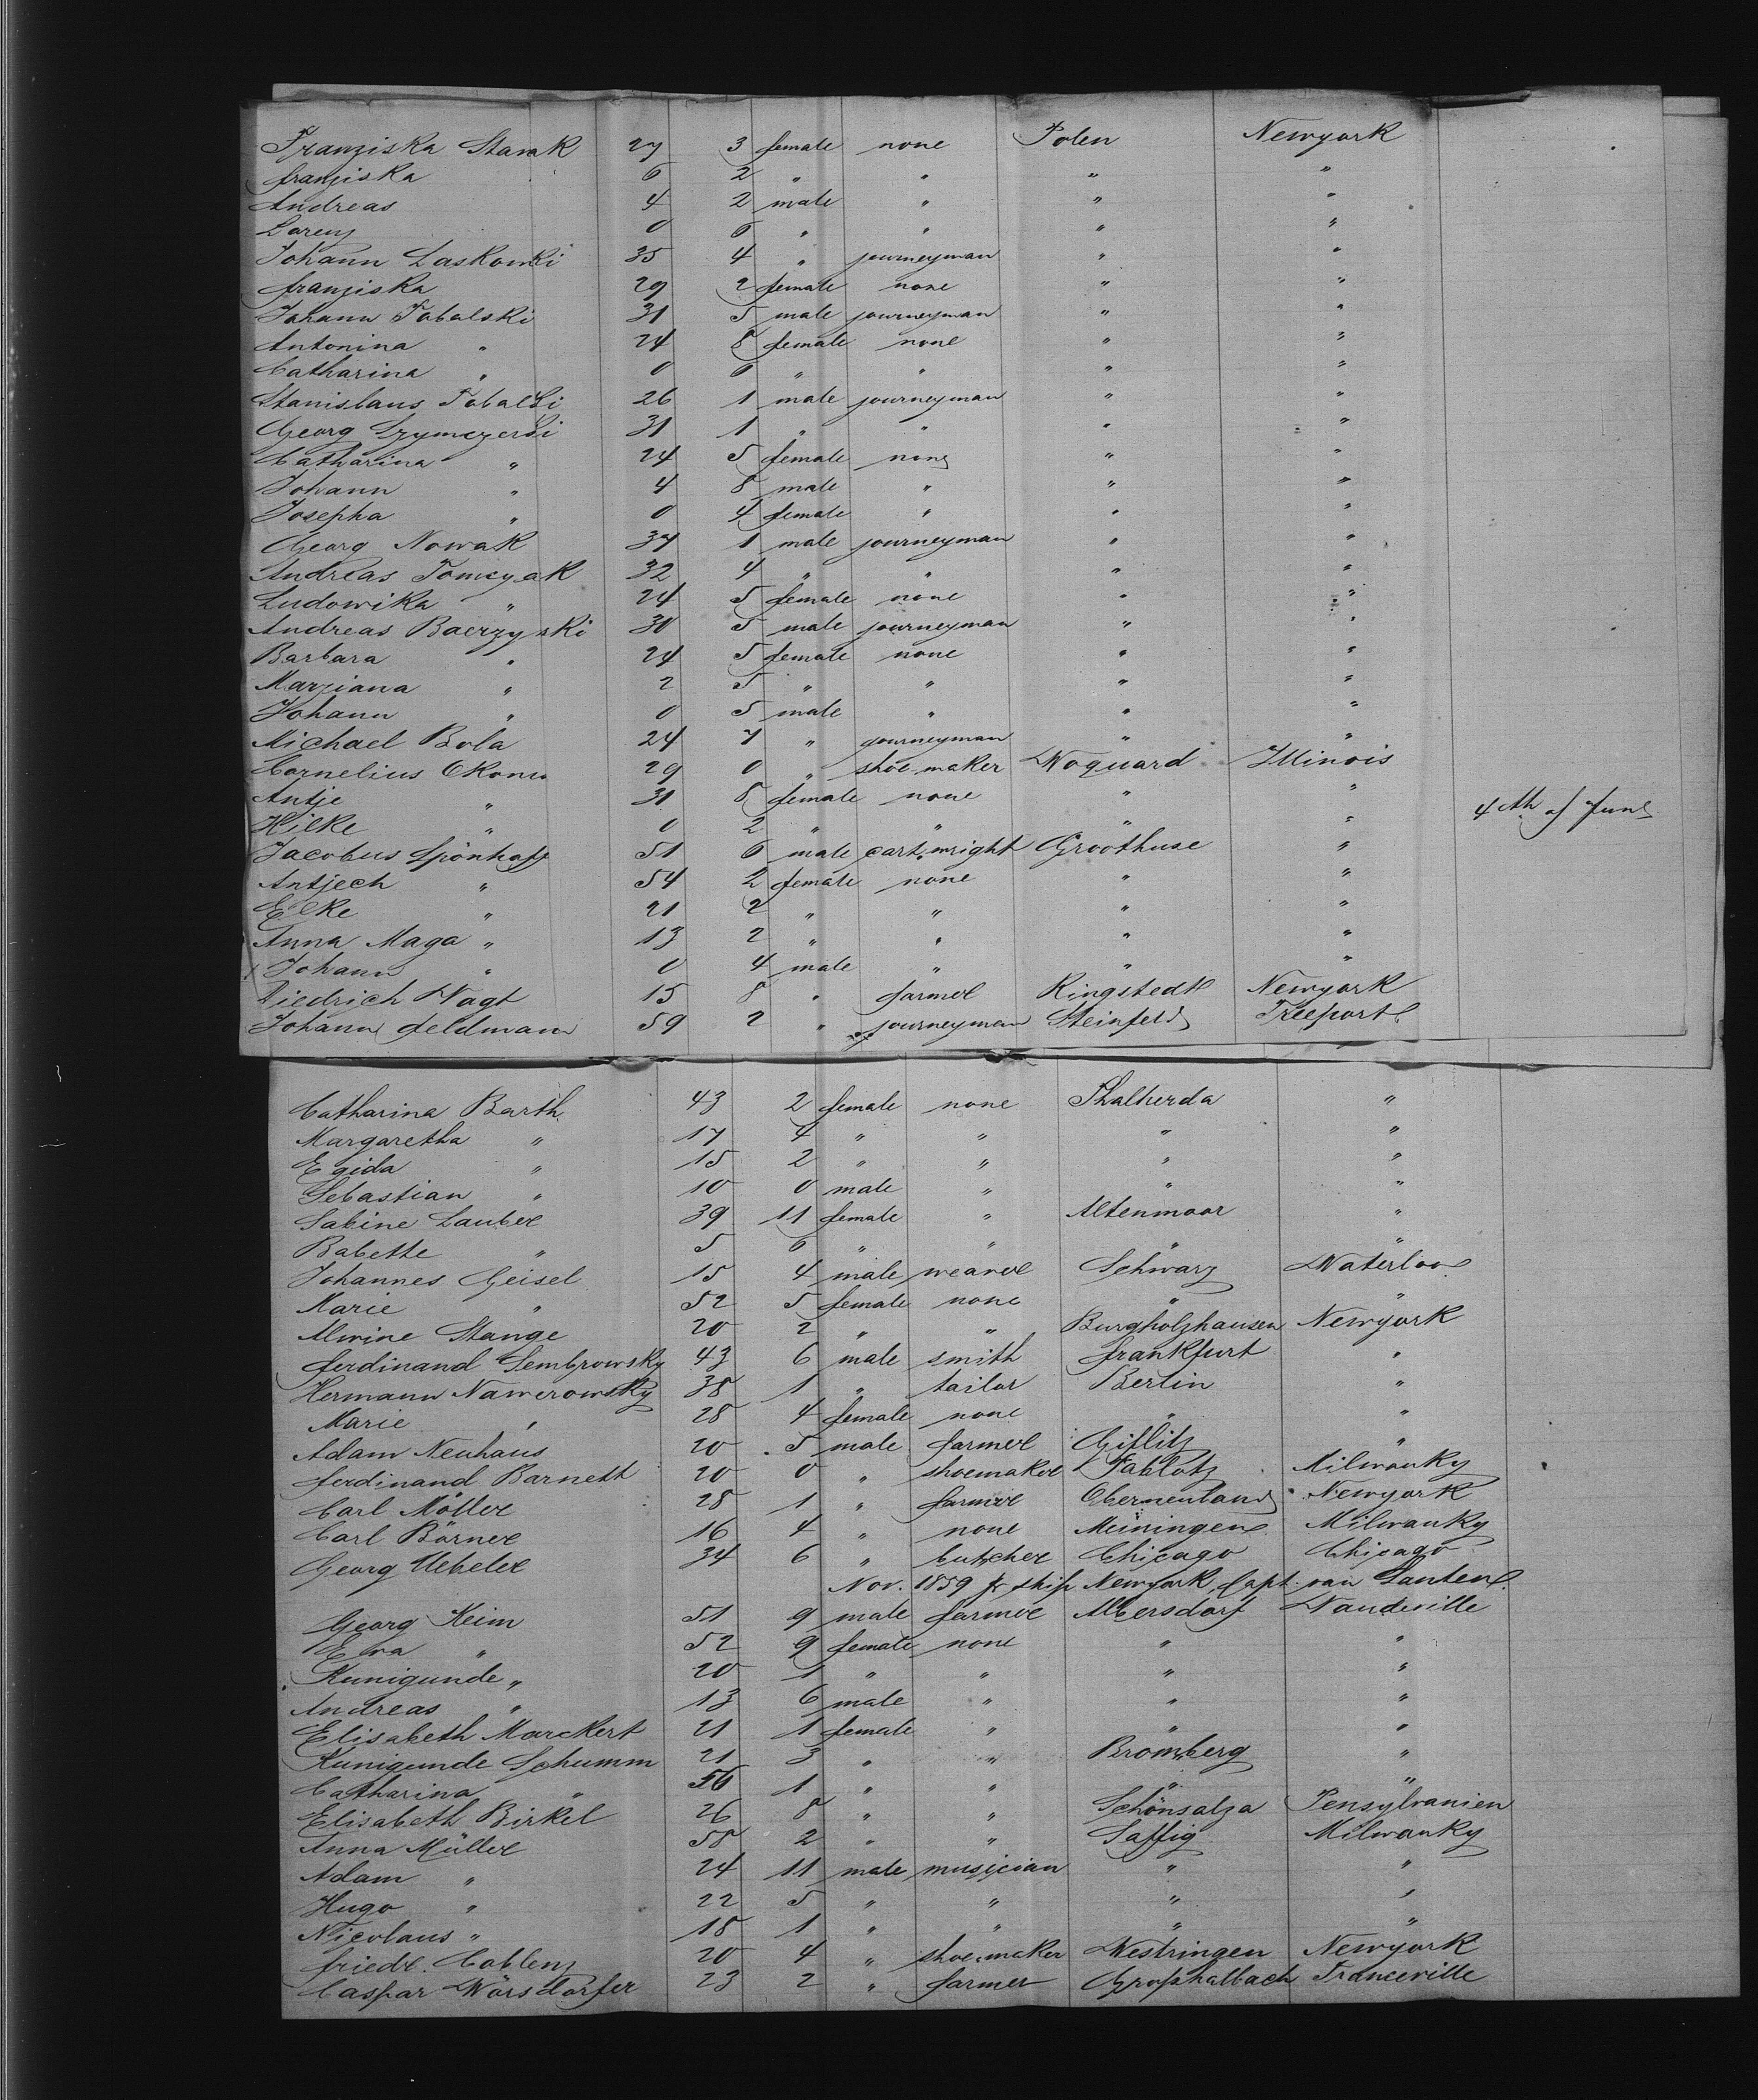 Franziska Starak 27 3 female none Polen Newyork
franziska 6 2 " " " "
Andreas 4 2 male " " "
Lorenz 0 6 " " " "
Johann Laskowski 35 4 " journeyman " "
franziska 29 2 female none " "
Johann Tobalski 31 5 male journeyman " "
Antonina " 24 8 female none " "
Catharina " 0 6 " " " "
Stanislaus Tobalski 26 1 male journeyman " "
Georg 31 1 " " " "
Catharina " 24 5 female none " "
Johann " 4 8 male " " "
Josepha " 0 4 female " " "
Georg Nowak 37 1 male journeyman " "
Andreas Tomczak 32 4 " " " "
Ludowika " 24 5 female none " "
Andreas 30 5 male journeyman " "
Barbara " 24 5 female none " "
Marziana " 2 5 " " " "
Johann " 0 5 male " " "
Michael Bola 24 7 " journeyman " "
Cornelius 29 0 " shoe maker Woquard Illinois
Antje " 31 8 female none " "
Hilke " 0 2 " " " " 4th of June
Jacobus Spönhoff 51 6 male cart wright Groothuse "
Antjech " 54 2 female none " "
Elke " 21 2 " " " "
Anna Maga " 13 2 " " " "
Johann " 0 4 male " " "
Diedrich Vagt 15 8 " farmer Ringstedt Newyork
Johann feldmann 59 2 " journeyman Steinfeld Freeport
Catharina Barth 43 2 female none Thalherda "
Margaretha " 17 4 " " " "
Egida " 15 2 " " " "
Sebastian " 10 0 male " " "
Sabine Lauber 39 11 female " Altenmoor "
Babette " 5 6 " " " "
Johannes Geisel 15 4 male weaver Schwarz Waterloo
Marie " 52 5 female none " "
Alwine Stange 20 2 " " Burgholzhausen Newyork
ferdinand Sembrowsky 43 6 male smith frankfurt "
Hermann Nawerowsky 38 1 " tailor Berlin "
Marie " 28 4 female none " "
Adam Neuhaus 20 5 male farmer Giflitz "
ferdinand Barnett 20 0 " shoemaker Tablotz Milwauky
Carl Möller 28 1 " farmer Oberneuland Newyork
Carl Börner 16 4 " none Meiningen Milwauky
Georg Uebeler 34 6 " butcher Chicago Chicago
Nov. 1859 pr ship Newyork, Capt. van Santen.
Georg Keim 51 9 male farmer Albersdorf Waudeville
Eva " 52 9 female none " "
Kunigunde " 20 1 " " " "
Andreas " 13 6 male " " "
Elisabeth Marckert 21 1 female " " "
Kunigunde Schumm 21 3 " " Bromberg "
Catharina " 56 1 " " " "
Elisabeth Birkel 26 8 " " Schönsalza Pensylvanien
Anna Müller 58 2 " " Saffig Milwauky
Adam " 24 11 male musician " "
Hugo " 22 5 " " " "
Nicolaus " 18 1 " " " "
friedr. Coblenz 20 4 " shoemaker Westringen Newyork
Caspar Wörsdorfer 23 2 " farmer Großhalbach Franceville